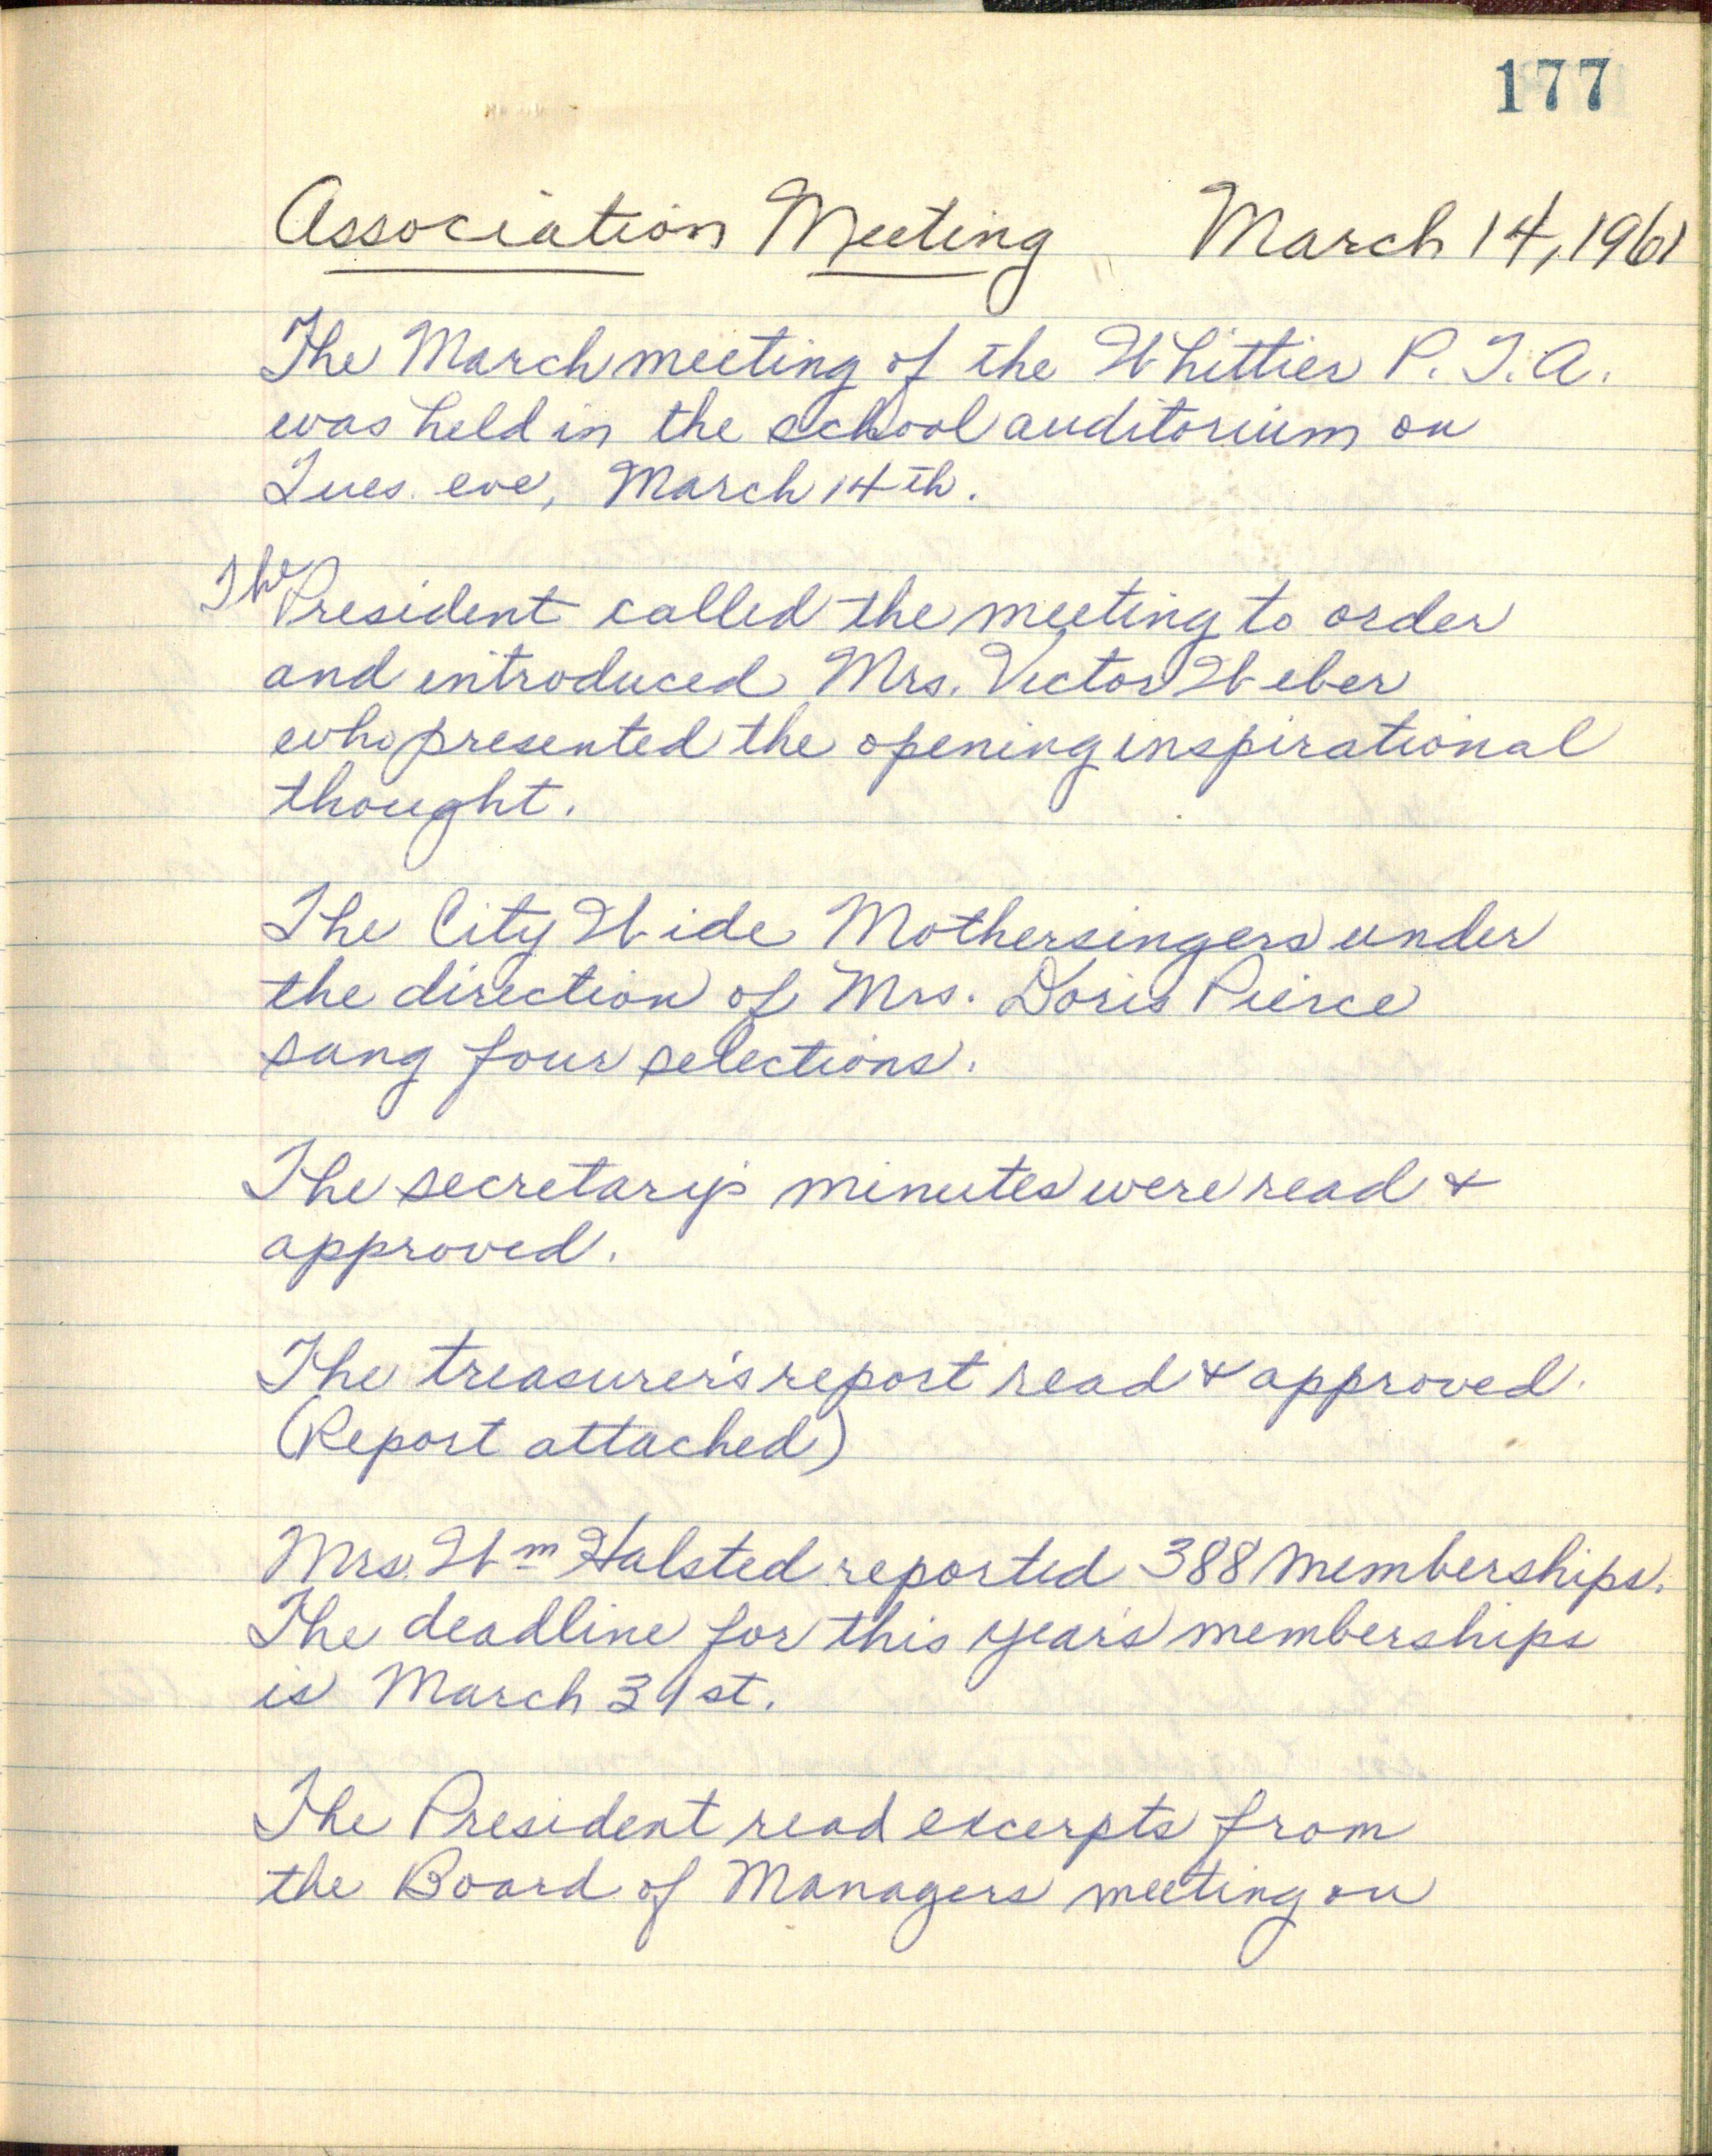 177
Association Meeting March 14, 1961
The March meeting of the Whittier P.T.A.
was held in the school auditorium on
Tues. eve, March 14th.
The President called the meeting to order
and introduced Mrs. Victor Weber
who presented the opening inspirational
thought.
The City Wide Mothersingers under
the direction of Mrs. Doris Pierce
sang four selections.
The secretary's minutes were read &
approved.
The treasurer's report read & approved.
(Report attached)
Mrs. Wm Halsted reported 388 memberships.
The deadline for this year's memberships
is March 31st.
The President read excerpts from
the Board of Managers meeting on